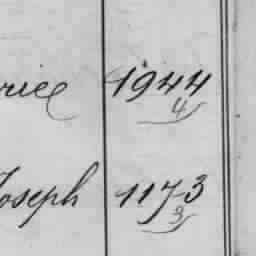 rice 1944
4
Joseph 1173
3